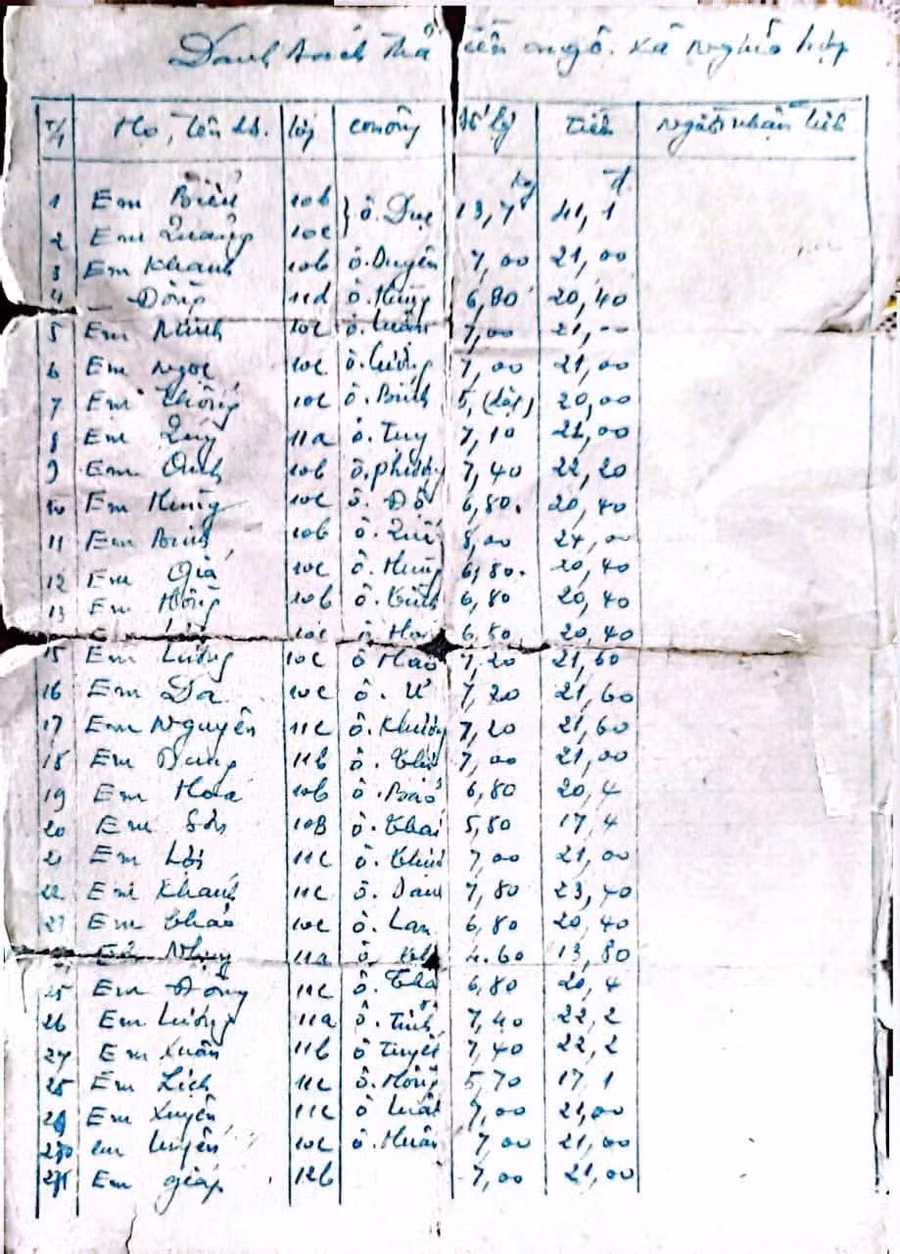 Danh sách Thả tiền ngô. xã Nghĩa hiệp
T/t Họ, tên hs. lớp con ông Số kg tiền người nhận tiền
kg đ
1 Em Biểu 10b } ô. Dục 13,7 41,1
2 Em Quảng 10c
3 Em Khanh 10b ô. Duyên 7,00 21,00
4 _ Đông 11d ô. Hùng 6,80 20,40
5 Em Minh 10c ô. Luân 7,00 21,--
6 Em Ngọc 10c ô. 7,00 21,00
7 Em 10c ô. Bính 5, 20,00
8 Em Quý 11a ô. Tuy 7,10 21,00
9 Em Oanh 10b ô. Phương 7,40 22,20
10 Em Hưng 10c ô. Độ 6,80. 20,40
11 Em Bính 10b ô. Quế 8,00 24,00
12 Em Giá 10c ô. Hưng 6,80. 20,40
13 Em Hồng 10b ô. 6,80 20,40
10c 6,80 20,40
15 Em Lương 10c ô Hào 7,20 21,60
16 Em Da 10c ô. Ư 7,20 21,60
17 Em Nguyên 11c ô. Khương 7,20 21,60
18 Em Dung 11b ô. 7,00 21,00
19 Em Hoa 10b ô. Bảo 6,80 20,4
20 Em Sơn 10B ô. Thai 5,80 17,4
21 Em Lợi 11c ô. 7,00 21,00
22 Em Khanh 11c ô. Dan 7,80 23,40
23 Em Thảo 10c ô. Lan 6,80 20,40
Nhung 11a ô. 4.60 13,80
25 Em Đông 11c ô. Thả 6,80 20,4
26 Em Lương 11a ô. Tính 7,40 22,2
27 Em Xuân 11b ô Tuyết 7,40 22,2
28 Em Lịch 11c ô. Hồng 5,70 17,1
29 Em Xuyên 11c ô Luật 7,00 21,00
30 em Luyến 10c ô. Huân 7,00 21,00
31 Em giáp 12b 7,00 21,00